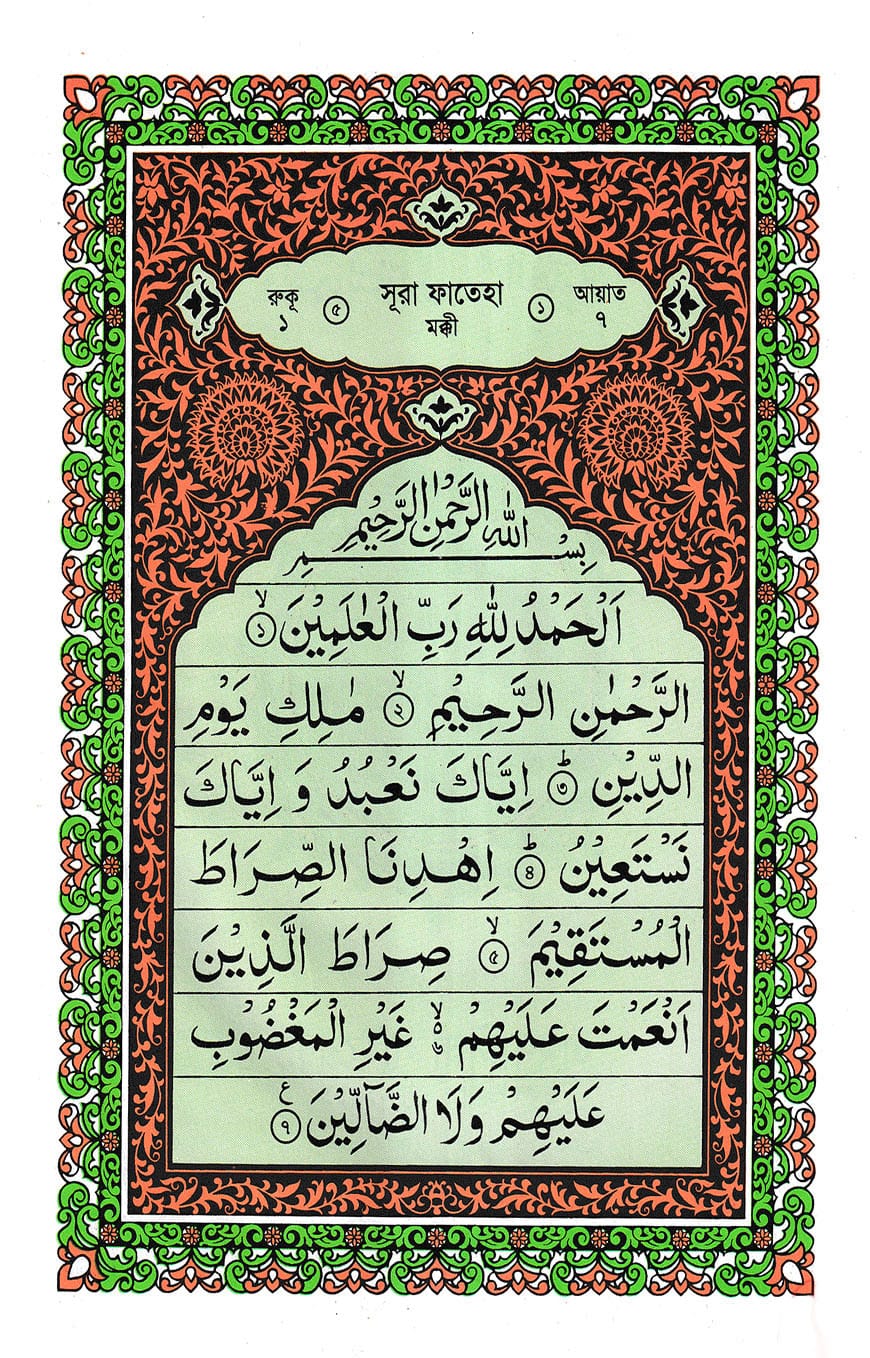 রুকূ ৫ সূরা ফাতেহা ১ আয়াত
১ মক্কী ৭
بِسْمِ اللهِ الرَّحْمٰنِ الرَّحِيْمِ
اَلْحَمْدُ لِلّٰهِ رَبِّ الْعٰلَمِيْنَ ۙ﴿১﴾
الرَّحْمٰنِ الرَّحِيْمِ ۙ﴿২﴾ مٰلِكِ يَوْمِ
الدِّيْنِ ؕ﴿৩﴾ اِيَّاكَ نَعْبُدُ وَ اِيَّاكَ
نَسْتَعِيْنُ ؕ﴿৪﴾ اِهْدِنَا الصِّرَاطَ
الْمُسْتَقِيْمَ ۙ﴿৫﴾ صِرَاطَ الَّذِيْنَ
اَنْعَمْتَ عَلَيْهِمْ ۙ۬ غَيْرِ الْمَغْضُوْبِ
عَلَيْهِمْ وَلَا الضَّآلِّيْنَ ﴿৭﴾ ع